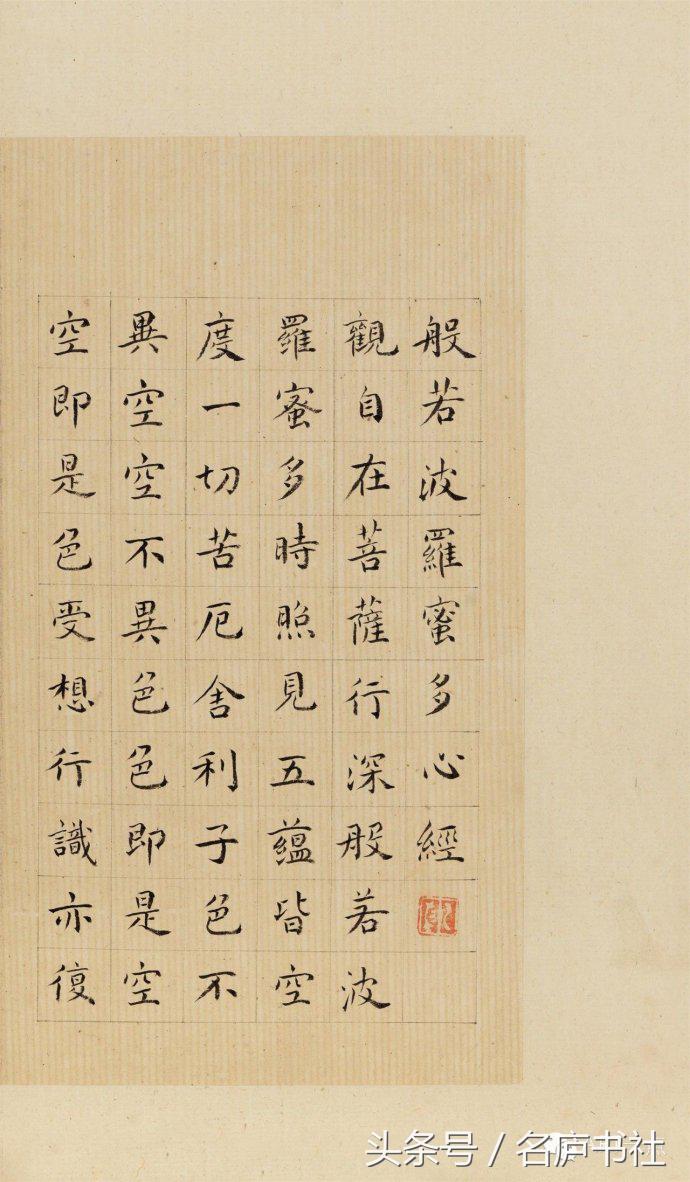 般若波羅蜜多心經
觀自在菩薩行深般若波
羅蜜多時照見五蘊皆空
度一切苦厄舍利子色不
異空空不異色色即是空
空即是色受想行識亦復
头条号 / 名庐书社